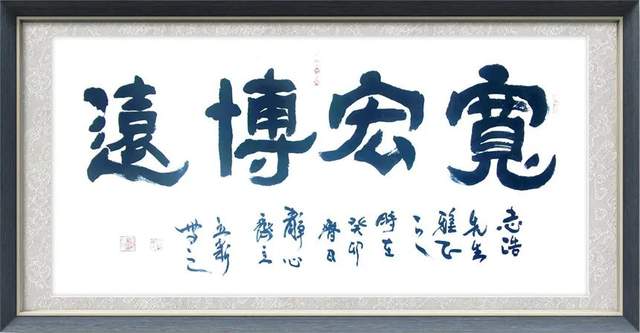 寬宏博遠
志浩
先生
雅正
時在
癸卯
日
靜心
齋主
立新